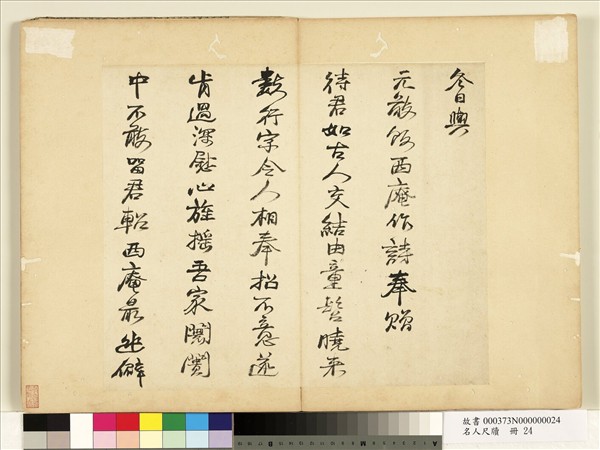 冬日與
元敬飯西庵作詩奉贈
待君如古人交結由童髫曉來
數行字令人相奉招不意遂
肯過深慰心旌搖吾家闤闠
中不敢留君軺西庵最幽僻
故書 000373N000000024
名人尺牘 冊 24